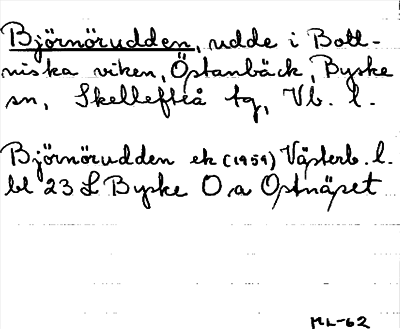 Björnörudden, udde i Bott-
niska viken, Östanbäck, Byske
sn, Skellefteå tg, Vb. l.
Björnörudden ek (1959) Västerb. l.
bl 23 L Byske O a Ostnäset
ML-62